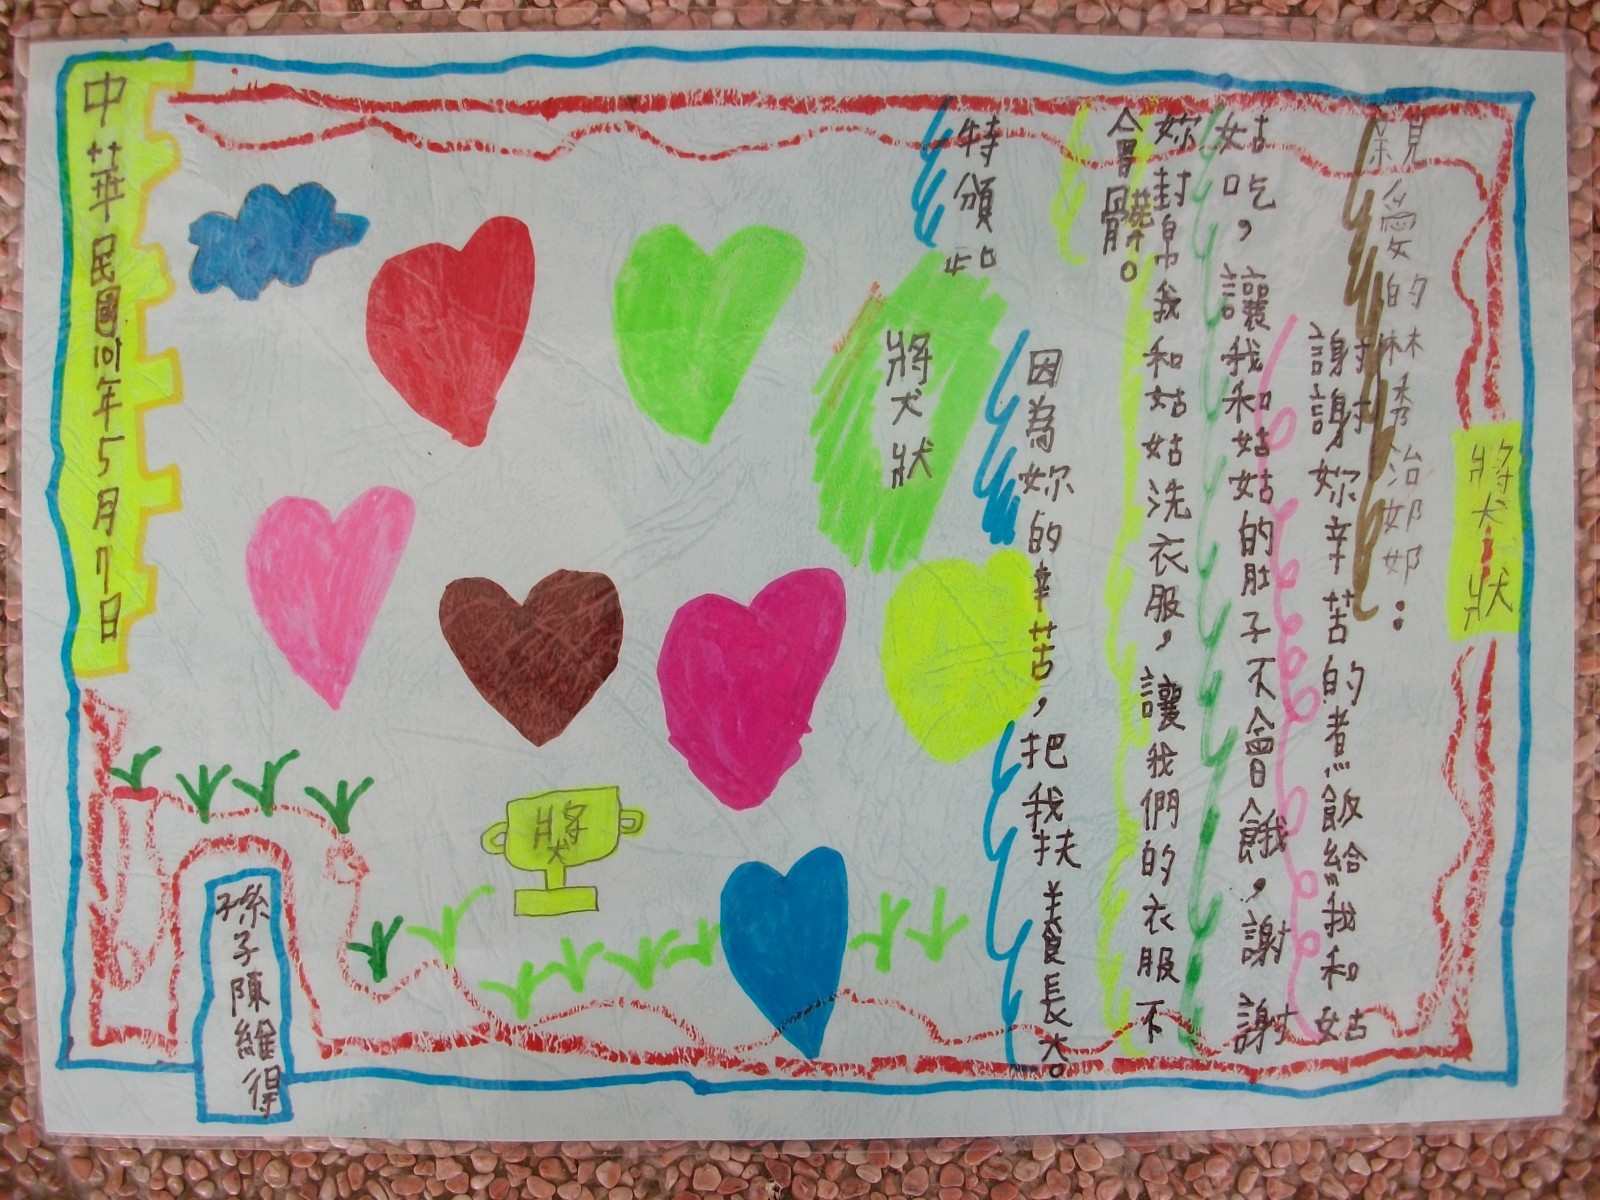 獎狀
親愛的林秀治奶奶：
謝謝妳辛苦的煮飯給我和姑
姑吃，讓我和姑姑的肚子不會餓，謝謝
妳幫我和姑姑洗衣服，讓我們的衣服不
會髒。
因為妳的辛苦，把我扶養長大。
特頒
獎狀
獎
孫子陳維得
中華民國101年5月7日